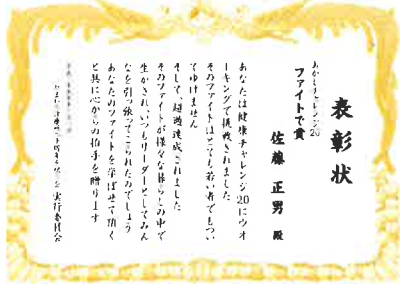 表彰状
ファイトで賞
佐藤 正男 殿
あなたは健康チャレンジ20にウォ
ーキングで挑戦されました
そのファイトはとても若い者でもつい
てゆけません
そして 超過達成されました
そのファイトが様々な暮らしの中で
生かされ いつもリーダーとしてみん
なを引っ張ってこられたのでしょう
あなたのファイトを学ばせて頂く
と共に心からの拍手を贈ります
実行委員会